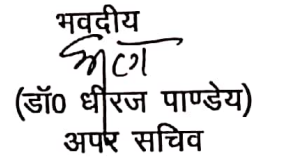 भवदीय
(डॉ0 धीरज पाण्डेय)
अपर सचिव